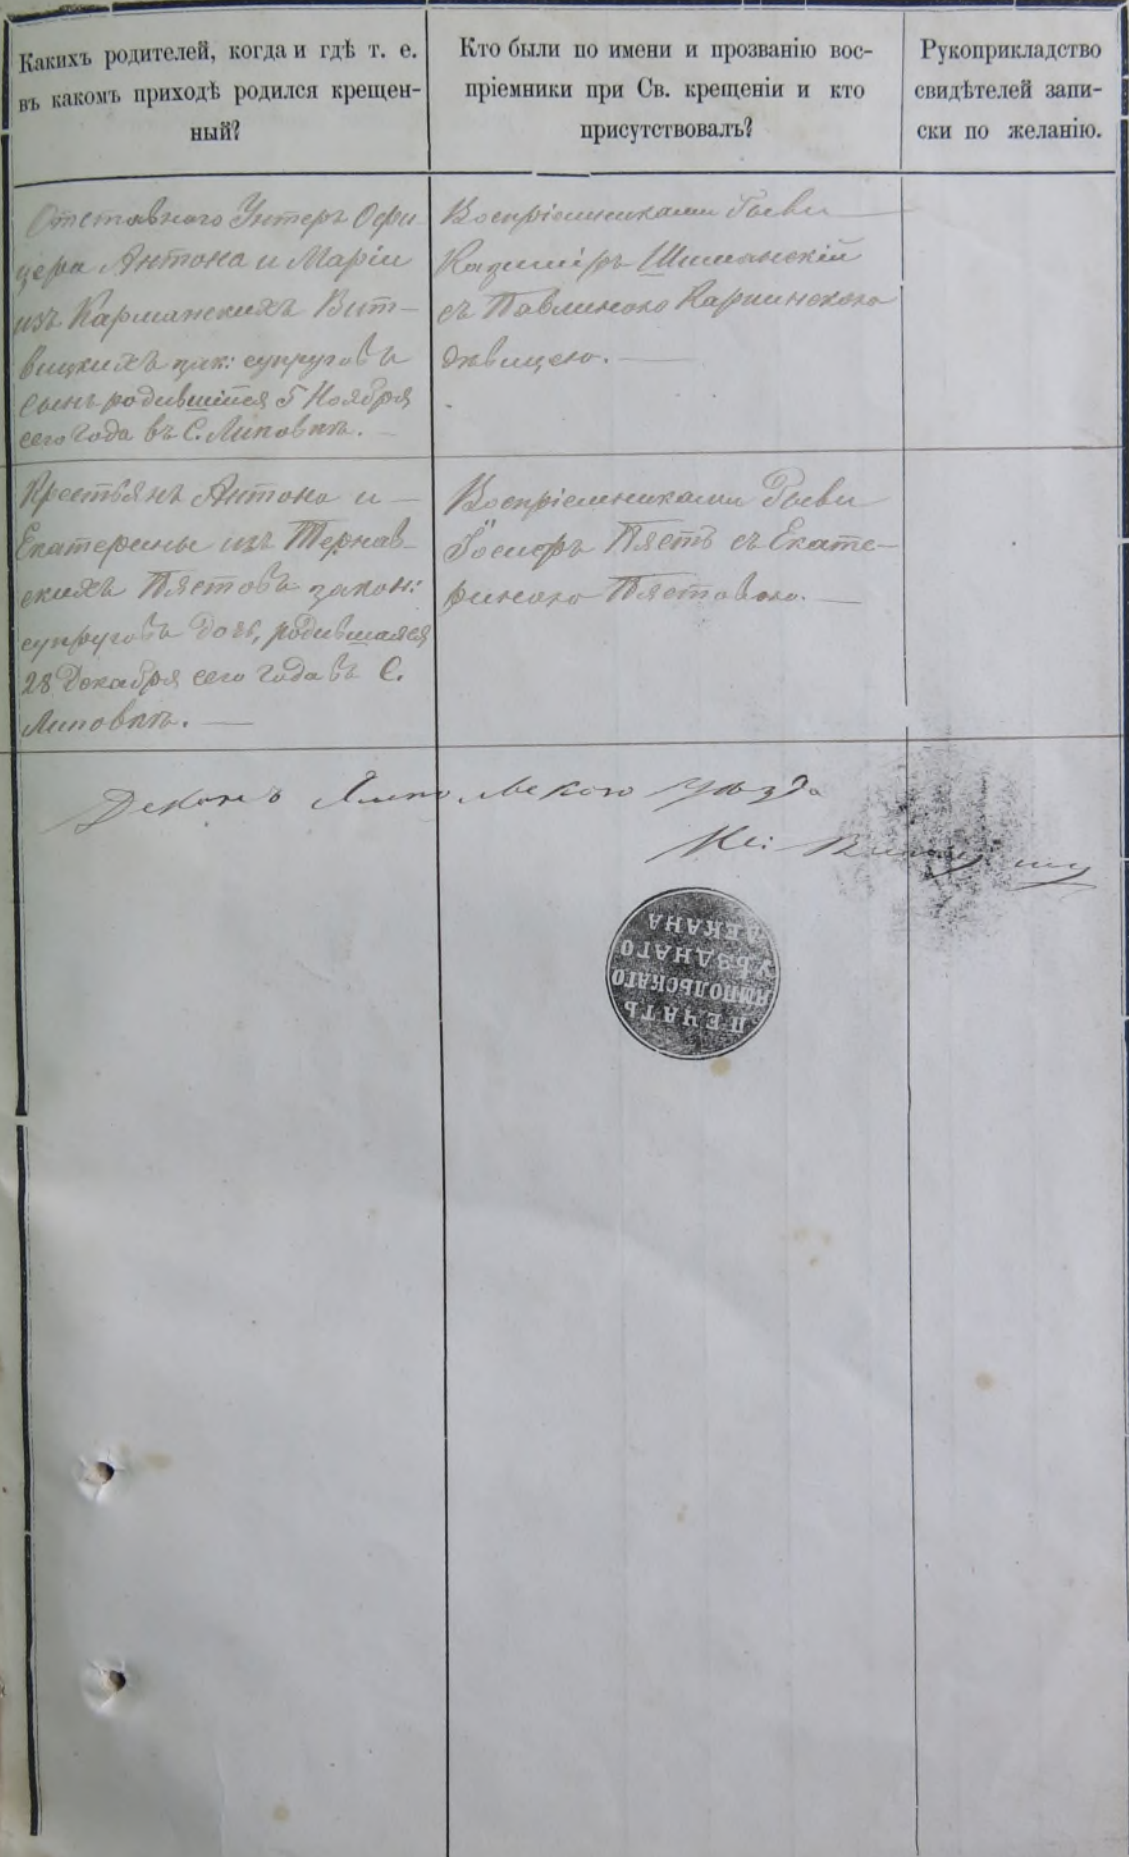 Какихъ родителей, когда и гдѣ т. е.
въ какомъ приходѣ родился крещен-
ный?
Кто были по имени и прозванію вос-
пріемники при Св. крещеніи и кто
присутствовалъ?
Рукоприкладство
свидѣтелей запи-
ски по желанію.
Отставного Унтеръ Офи
цера Антона и Маріи
изъ Карманскихъ Вит-
вицкихъ зак: супруговъ
сынъ родившійся 5 Ноября
сего года въ С. Липовкѣ.
Воспріемниками были
Казиміръ Шиманскій
съ Павлиною Карминскою
дѣвицею.
Крестьянъ Антона и
Екатерины изъ Тернав-
скихъ Пястовъ закон:
супруговъ дочь, родившаяся
28 Декабря сего года въ С.
Липовкѣ.
Воспріемниками были
Іосифъ Пястъ съ Екате-
риною Пястовою.
Деканъ Ямпольскаго уѣзда
Кс:
ПЕЧАТЬ
ЯМПОЛЬСКАГО
УѢЗДНАГО
ДЕКАНА